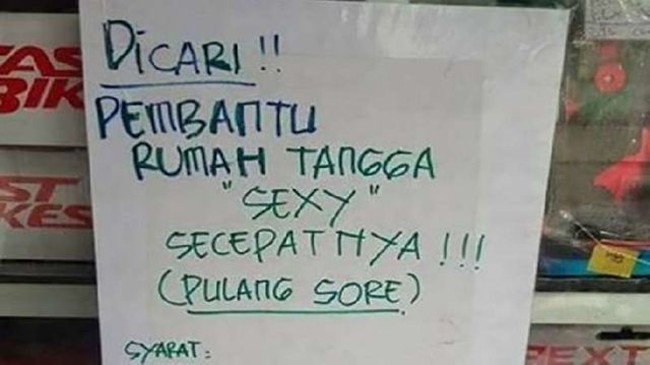 DICARI !!
PEMBANTU
RUMAH TANGGA
"SEXY"
SECEPATNYA !!!
(PULANG SORE)
SYARAT:
FAST
BIKE
ST
KES
PEXT